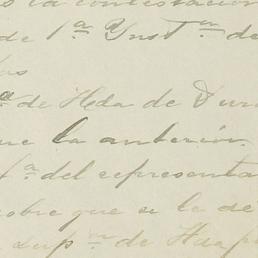 la contestación
de 1.ª Ynst.ª de
las
ª de Hda de Dur
ue la anterior.
t.ª del representa
sobre que se le de
Sup.ᵐᵃ de Huap